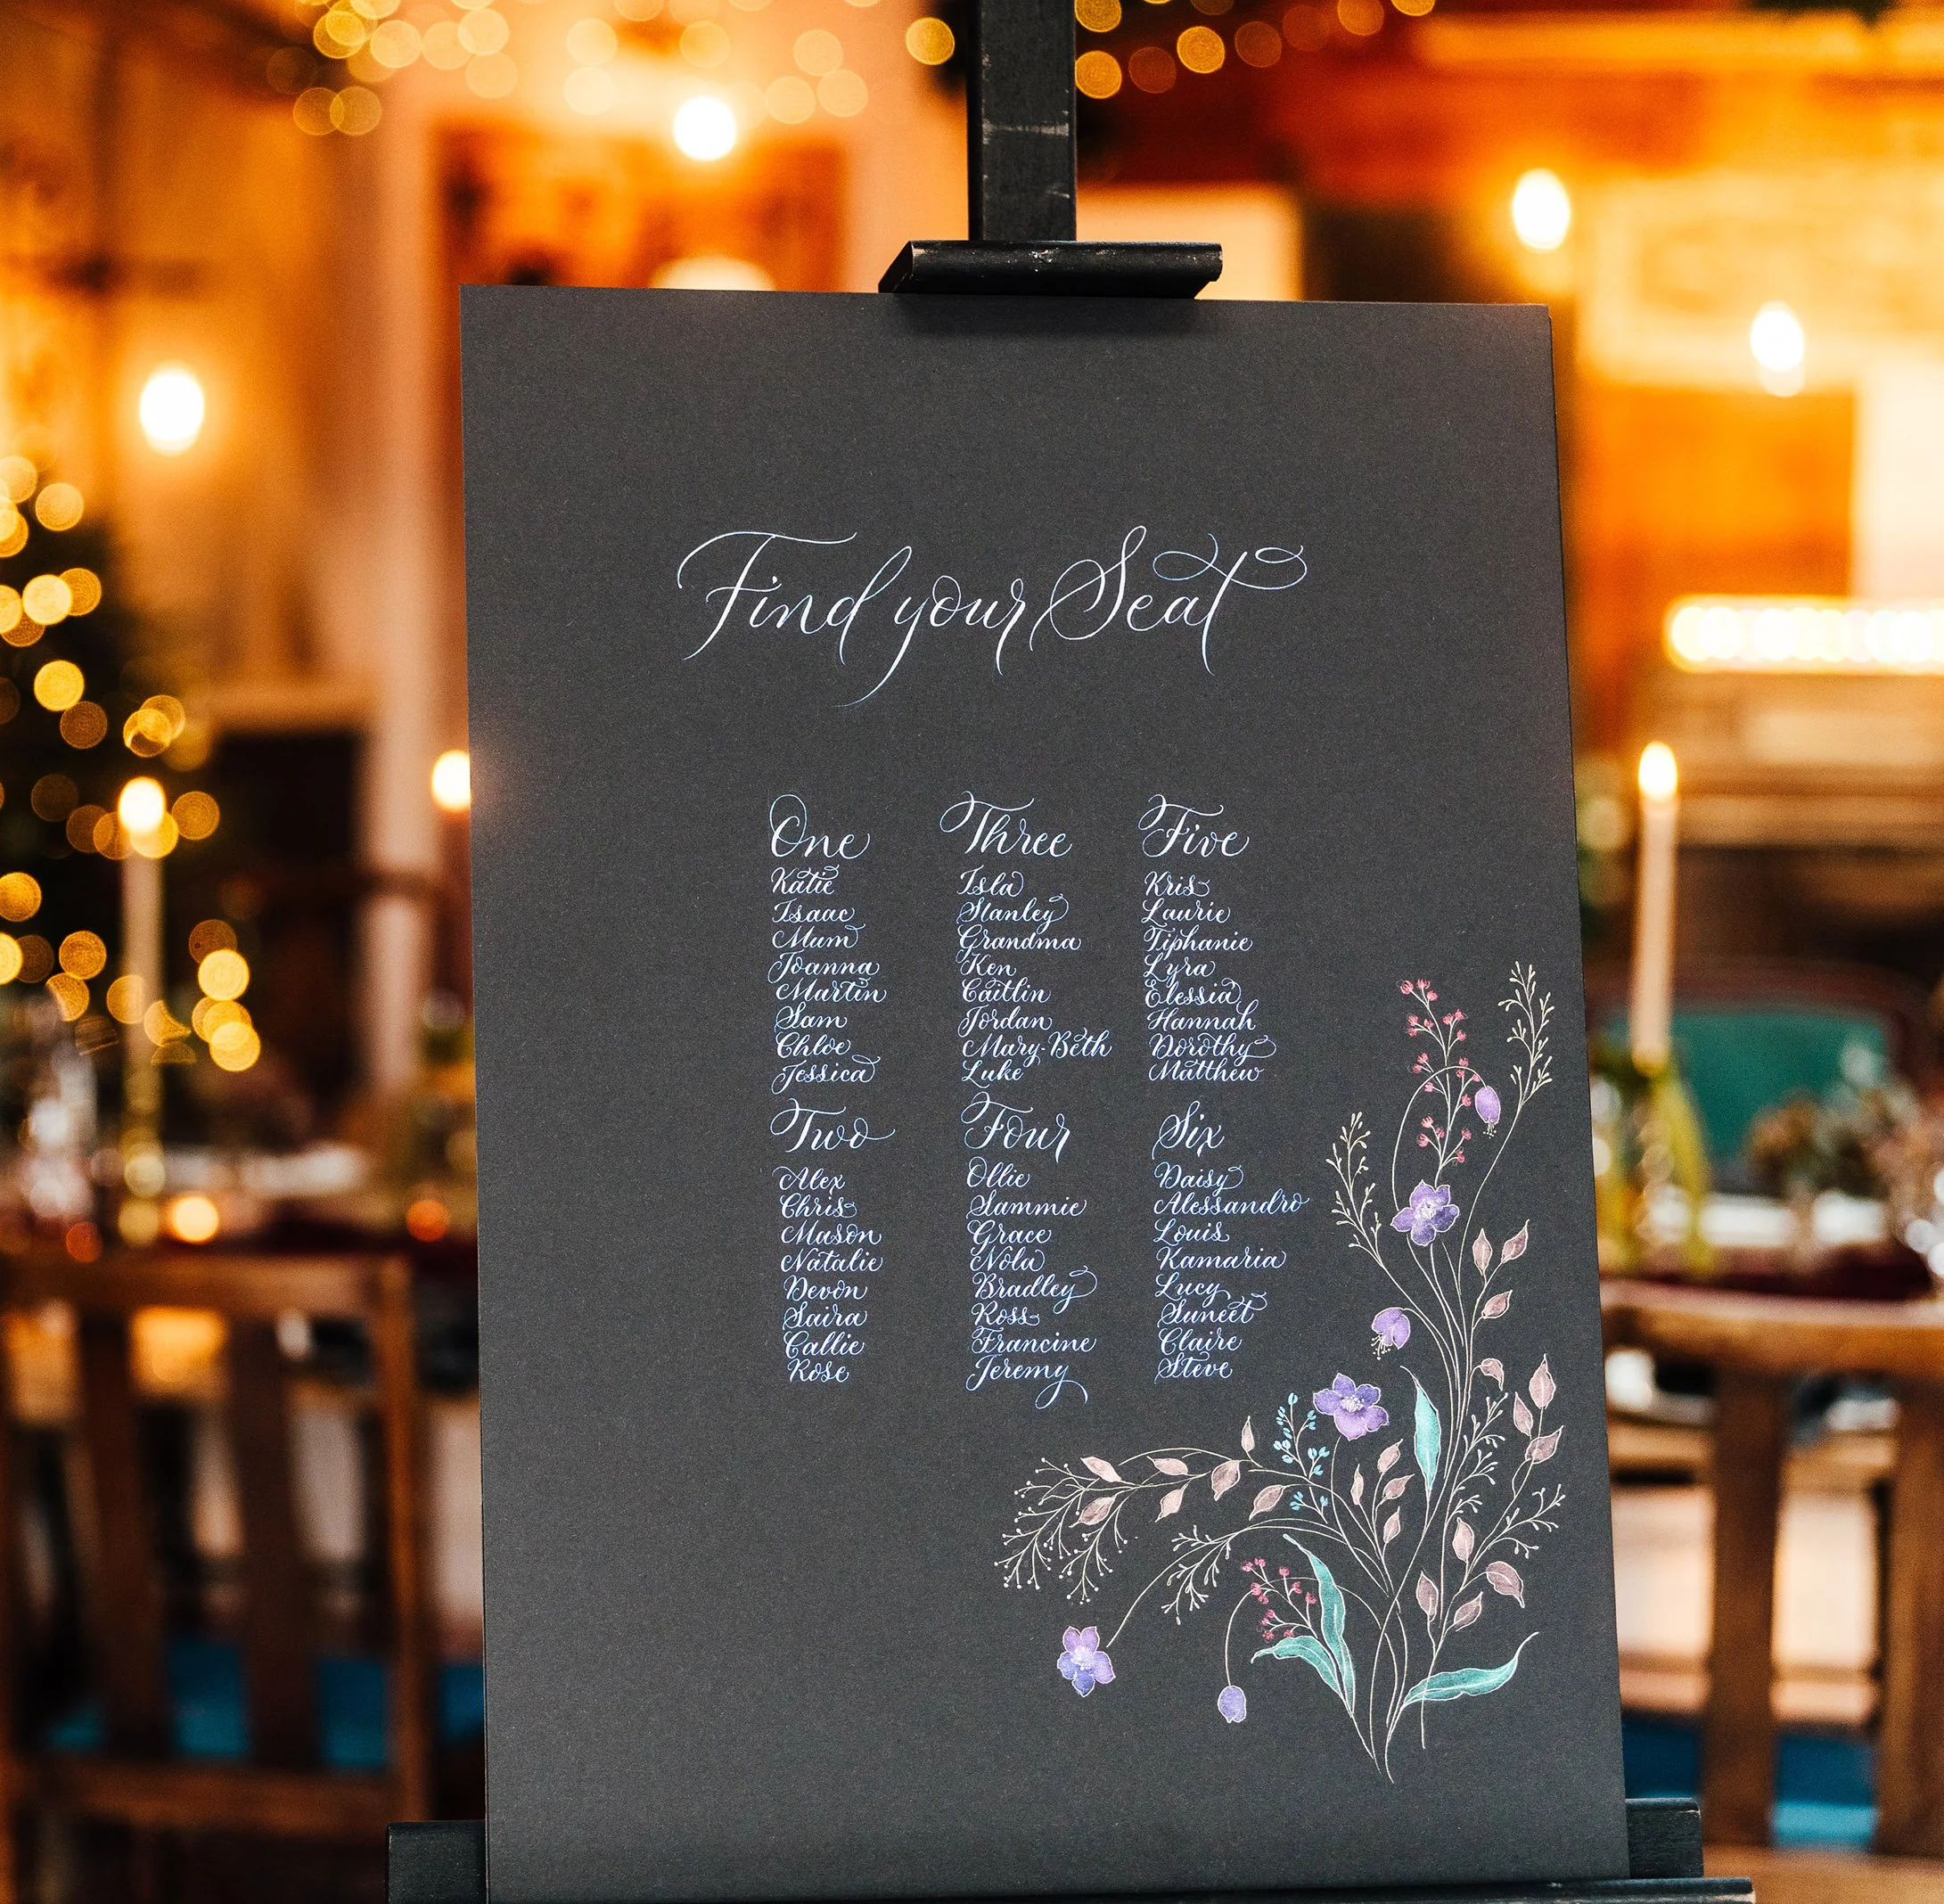 Find your Seat
One
Katie
Isaac
Mum
Joanna
Martin
Sam
Chloe
Jessica
Two
Alex
Chris
Mason
Natalie
Devon
Saira
Callie
Rose
Three
Isla
Stanley
Grandma
Ken
Caitlin
Jordan
Mary-Beth
Luke
Four
Ollie
Sammie
Grace
Nola
Bradley
Ross
Francine
Jeremy
Five
Kris
Laurie
Tiphanie
Lyra
Elessia
Hannah
Dorothy
Matthew
Six
Daisy
Alessandro
Louis
Kamaria
Lucy
Suneet
Claire
Steve